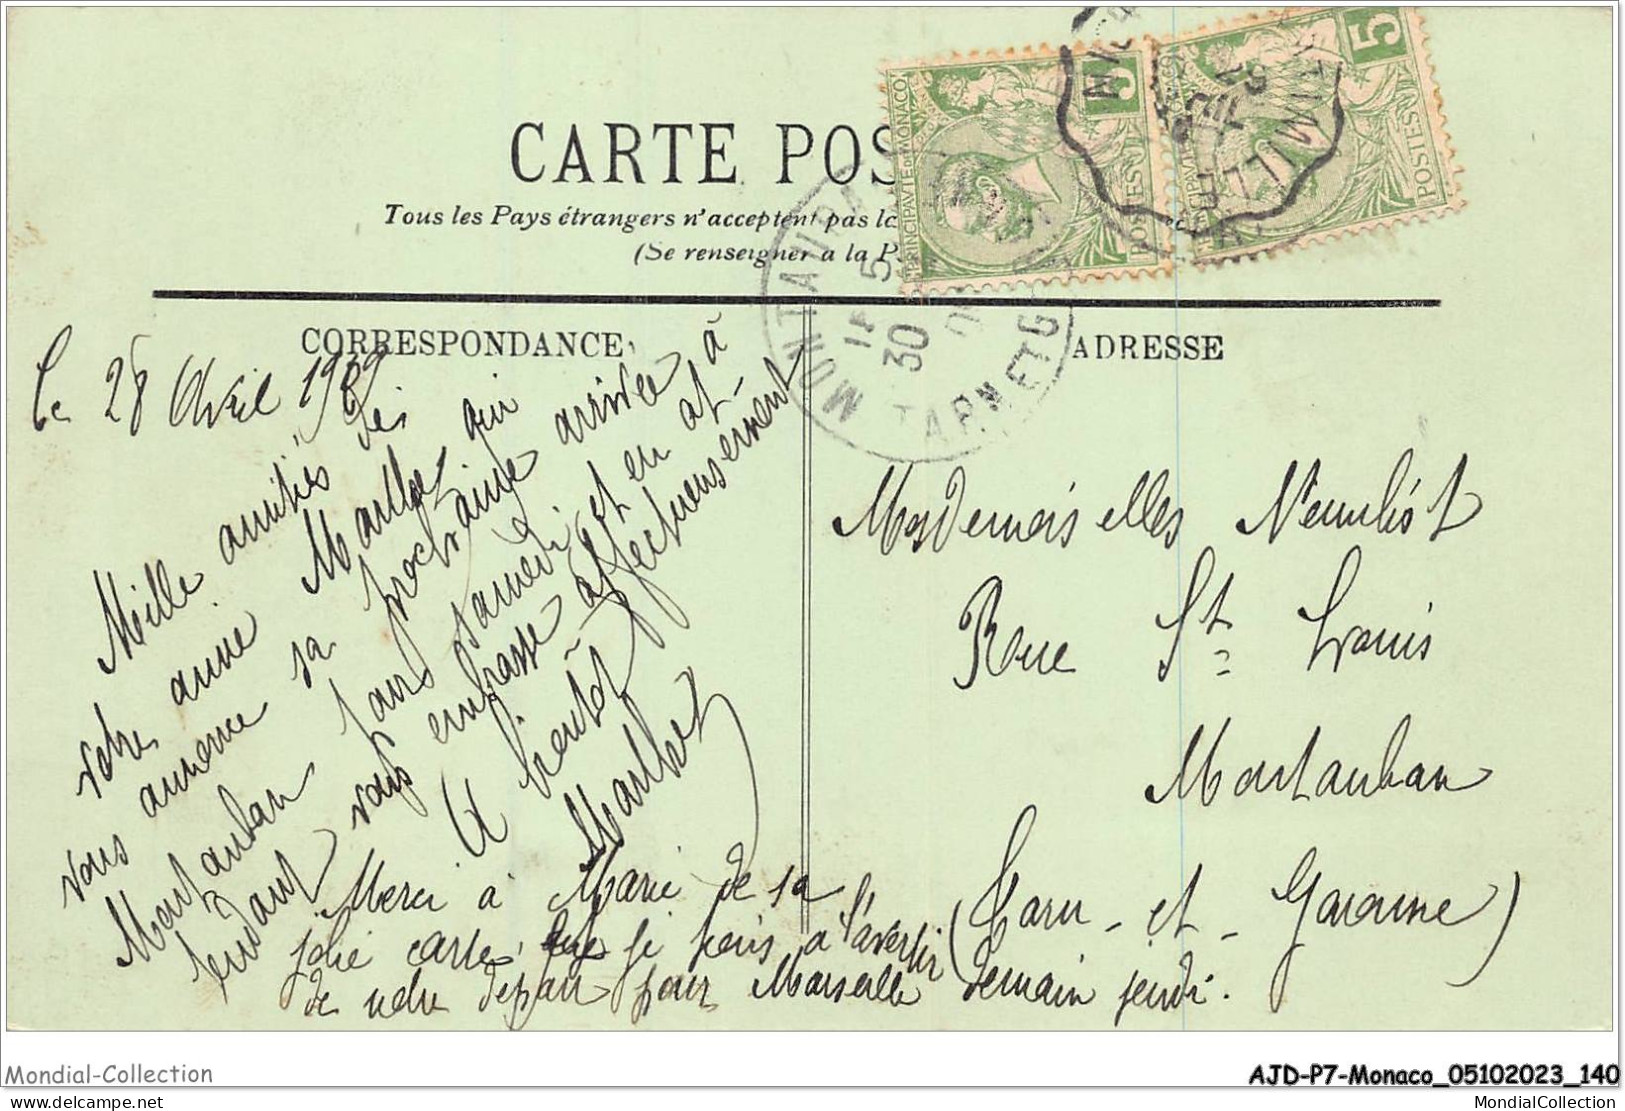 CARTE POS
Tous les Pays étrangers n'acceptent pas la
(Se renseigner à la P
5
PRINCIPAUTÉ DE MONACO
POSTES
5
POSTES
MONTAUBAN
5
30
TARN ET G
CORRESPONDANCE
ADRESSE
Le 28 Avril 1909
Mille amitiés de
votre amie Marthe qui
vous annonce sa prochaine arrivée à
Montauban samedi et en at-
tendant vous embrasse affectueusement
A bientôt
Marthe
Merci à Marie de sa
jolie carte, je puis à l'avertir
de notre départ pour Marseille demain jeudi.
Mesdemoiselles
Rue St Louis
Montauban
(Tarn-et-Garonne)
Mondial-Collection
AJD-P7-Monaco_05102023_140
delcampe.net
MondialCollection